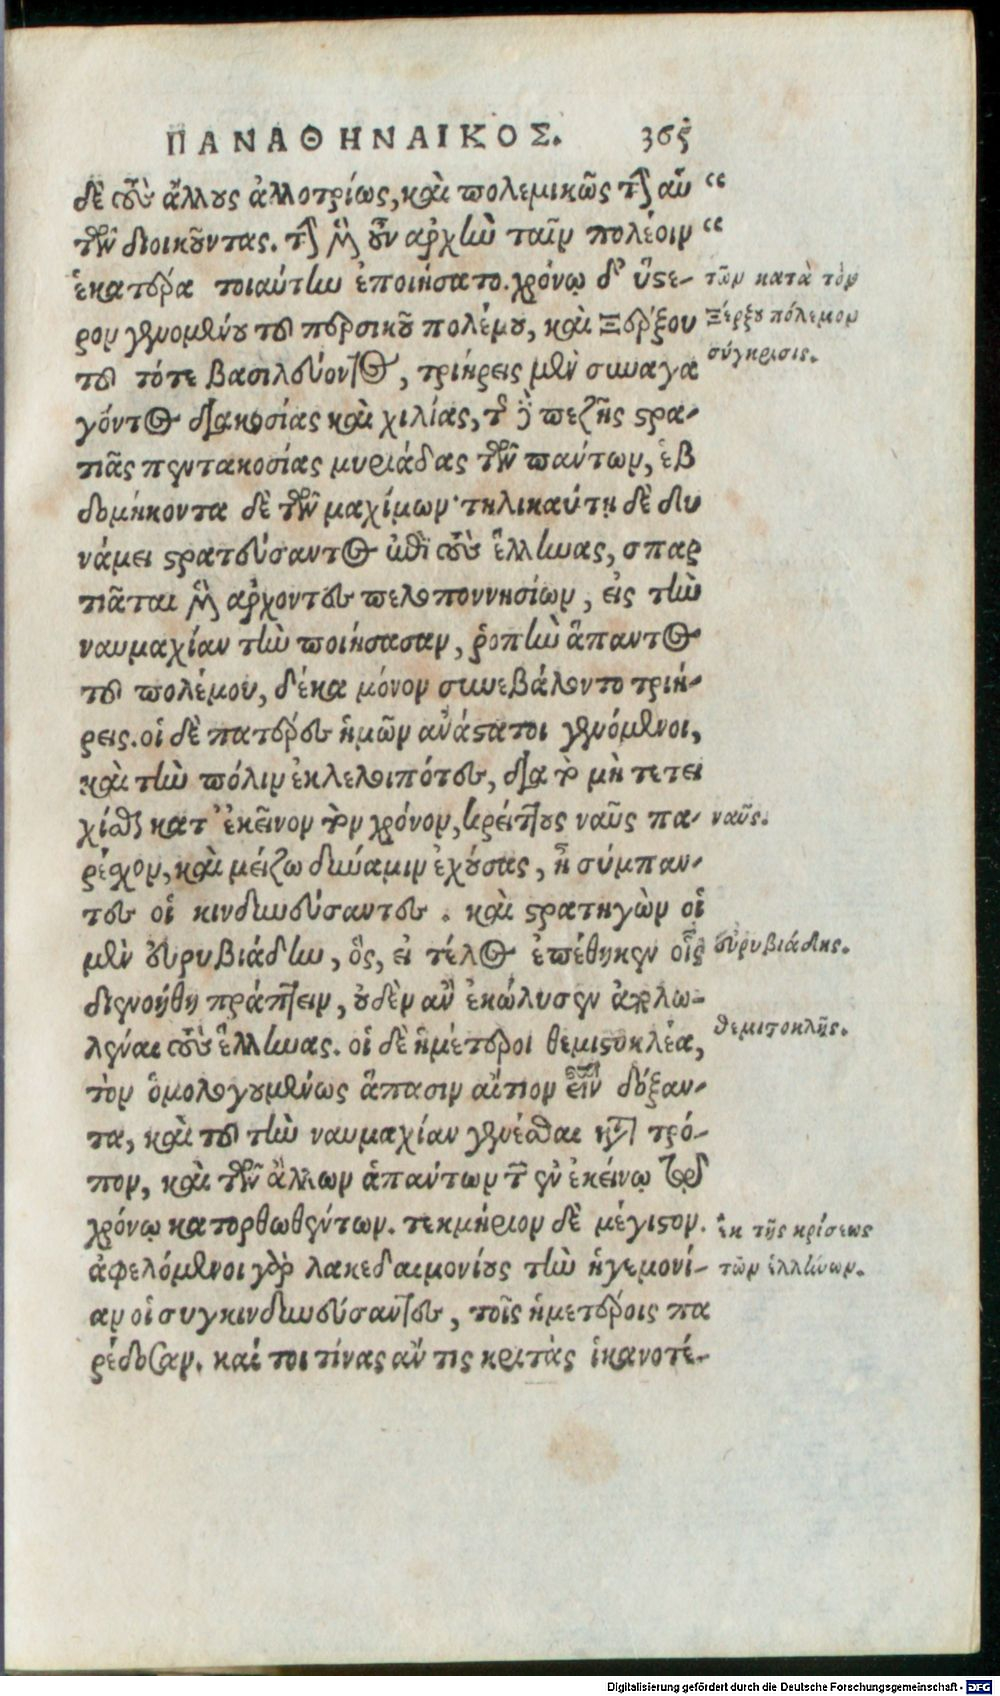 ΠΑΝΑΘΗΝΑΙΚΟΣ. 365
δὲ τοὺς ἄλλους ἀλλοτρίως, καὶ πολεμικῶς τὰ αὑ “
τῶν διοικοῦντας. τὰ μὲν οὖν ἀρχὴν ταῖν πολέοιν “
ἑκατέρα τοιαύτην ἐποιήσατο. χρόνῳ δ' ὕστε-
ρον γενομένου τοῦ περσικοῦ πολέμου, καὶ Ξέρξου
τοῦ τότε βασιλεύοντος, τριήρεις μὲν συναγα
γόντος διακοσίας καὶ χιλίας, τῆς δὲ πεζῆς στρα-
τιᾶς πεντακοσίας μυριάδας τῶν πάντων, ἑβ
δομήκοντα δὲ τῶν μαχίμων· τηλικαύτῃ δὲ δυ
νάμει στρατεύσαντος ἐπὶ τοὺς ἕλληνας, σπαρ
τιᾶται μὲν ἄρχοντες πελοποννησίων, εἰς τὴν
ναυμαχίαν τὴν ποιήσασαν, ῥοπὴν ἅπαντος
τοῦ πολέμου, δέκα μόνον συνεβάλοντο τριή-
ρεις. οἱ δὲ πατέρες ἡμῶν ἀνάστατοι γενόμενοι,
καὶ τὴν πόλιν ἐκλελοιπότες, διὰ τὸ μὴ τετει
χίσθαι κατ' ἐκεῖνον τὸν χρόνον, κρείττους ναῦς πα-
ρέσχον, καὶ μείζω δύναμιν ἐχούσας, ἢ σύμπαν-
τες οἱ κινδυνεύσαντες. καὶ στρατηγὸν οἱ
μὲν εὐρυβιάδην, ὃς, εἰ τέλος ἐπέθηκεν οἷς
διενοήθη πράττειν, οὐδὲν ἂν ἐκώλυσεν ἀπολω-
λέναι τοὺς ἕλληνας. οἱ δὲ ἡμέτεροι θεμιστοκλέα,
τὸν ὁμολογουμένως ἅπασιν αἴτιον εἶναι δόξαν-
τα, καὶ τοῦ τὴν ναυμαχίαν γενέσθαι κατὰ τρό-
πον, καὶ τῶν ἄλλων ἁπάντων τῶν ἐν ἐκείνῳ τῷ
χρόνῳ κατορθωθέντων. τεκμήριον δὲ μέγιστον.
ἀφελόμενοι γὰρ λακεδαιμονίους τὴν ἡγεμονί-
αν οἱ συγκινδυνεύσαντες, τοῖς ἡμετέροις πα
ρέδοσαν. καί τοι τίνας ἄν τις κριτὰς ἱκανοτέ-
τῶν κατὰ τὸν
Ξέρξου πόλεμον
σύγκρισις.
ναῦς.
εὐρυβιάδης.
θεμιτοκλῆς.
ἐκ τῆς κρίσεως
τῶν ἑλλήνων.
Digitalisierung gefördert durch die Deutsche Forschungsgemeinschaft - DFG